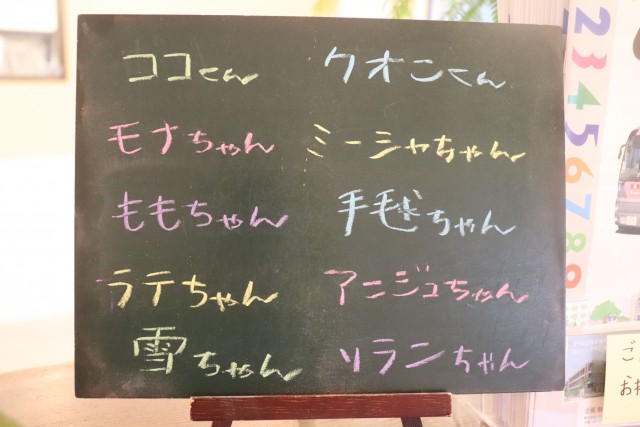 ココくん クオンくん
モナちゃん ミーシャちゃん
ももちゃん 手毬ちゃん
ラテちゃん アンジュちゃん
雪ちゃん ソランちゃん
2
3
4
5
6
7
8
9
ご
お